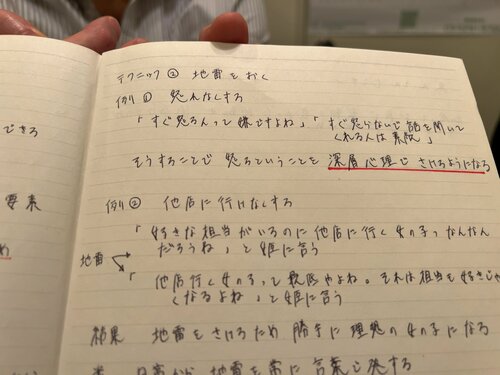 テクニック② 地雷をおく
例り① 怒れなくする
「すぐ怒る人って嫌ですよね」「すぐ怒らないで話を聞いて
くれる人は素敵」
そうすることで 怒るということを 深層心理で さけるようになる
できる
要素
例り② 他店に行けなくする
「好きな担当がいるのに他店に行く女の子ってなんなん
だろうね」と姫に言う
地雷
「他店行く女の子って最低やよね。それは担当も好きじゃ
なくなるよね」と姫に言う
め
結果 地雷をさけるため 勝手に理想の女の子になる
日常から 地雷を常に言葉で発する